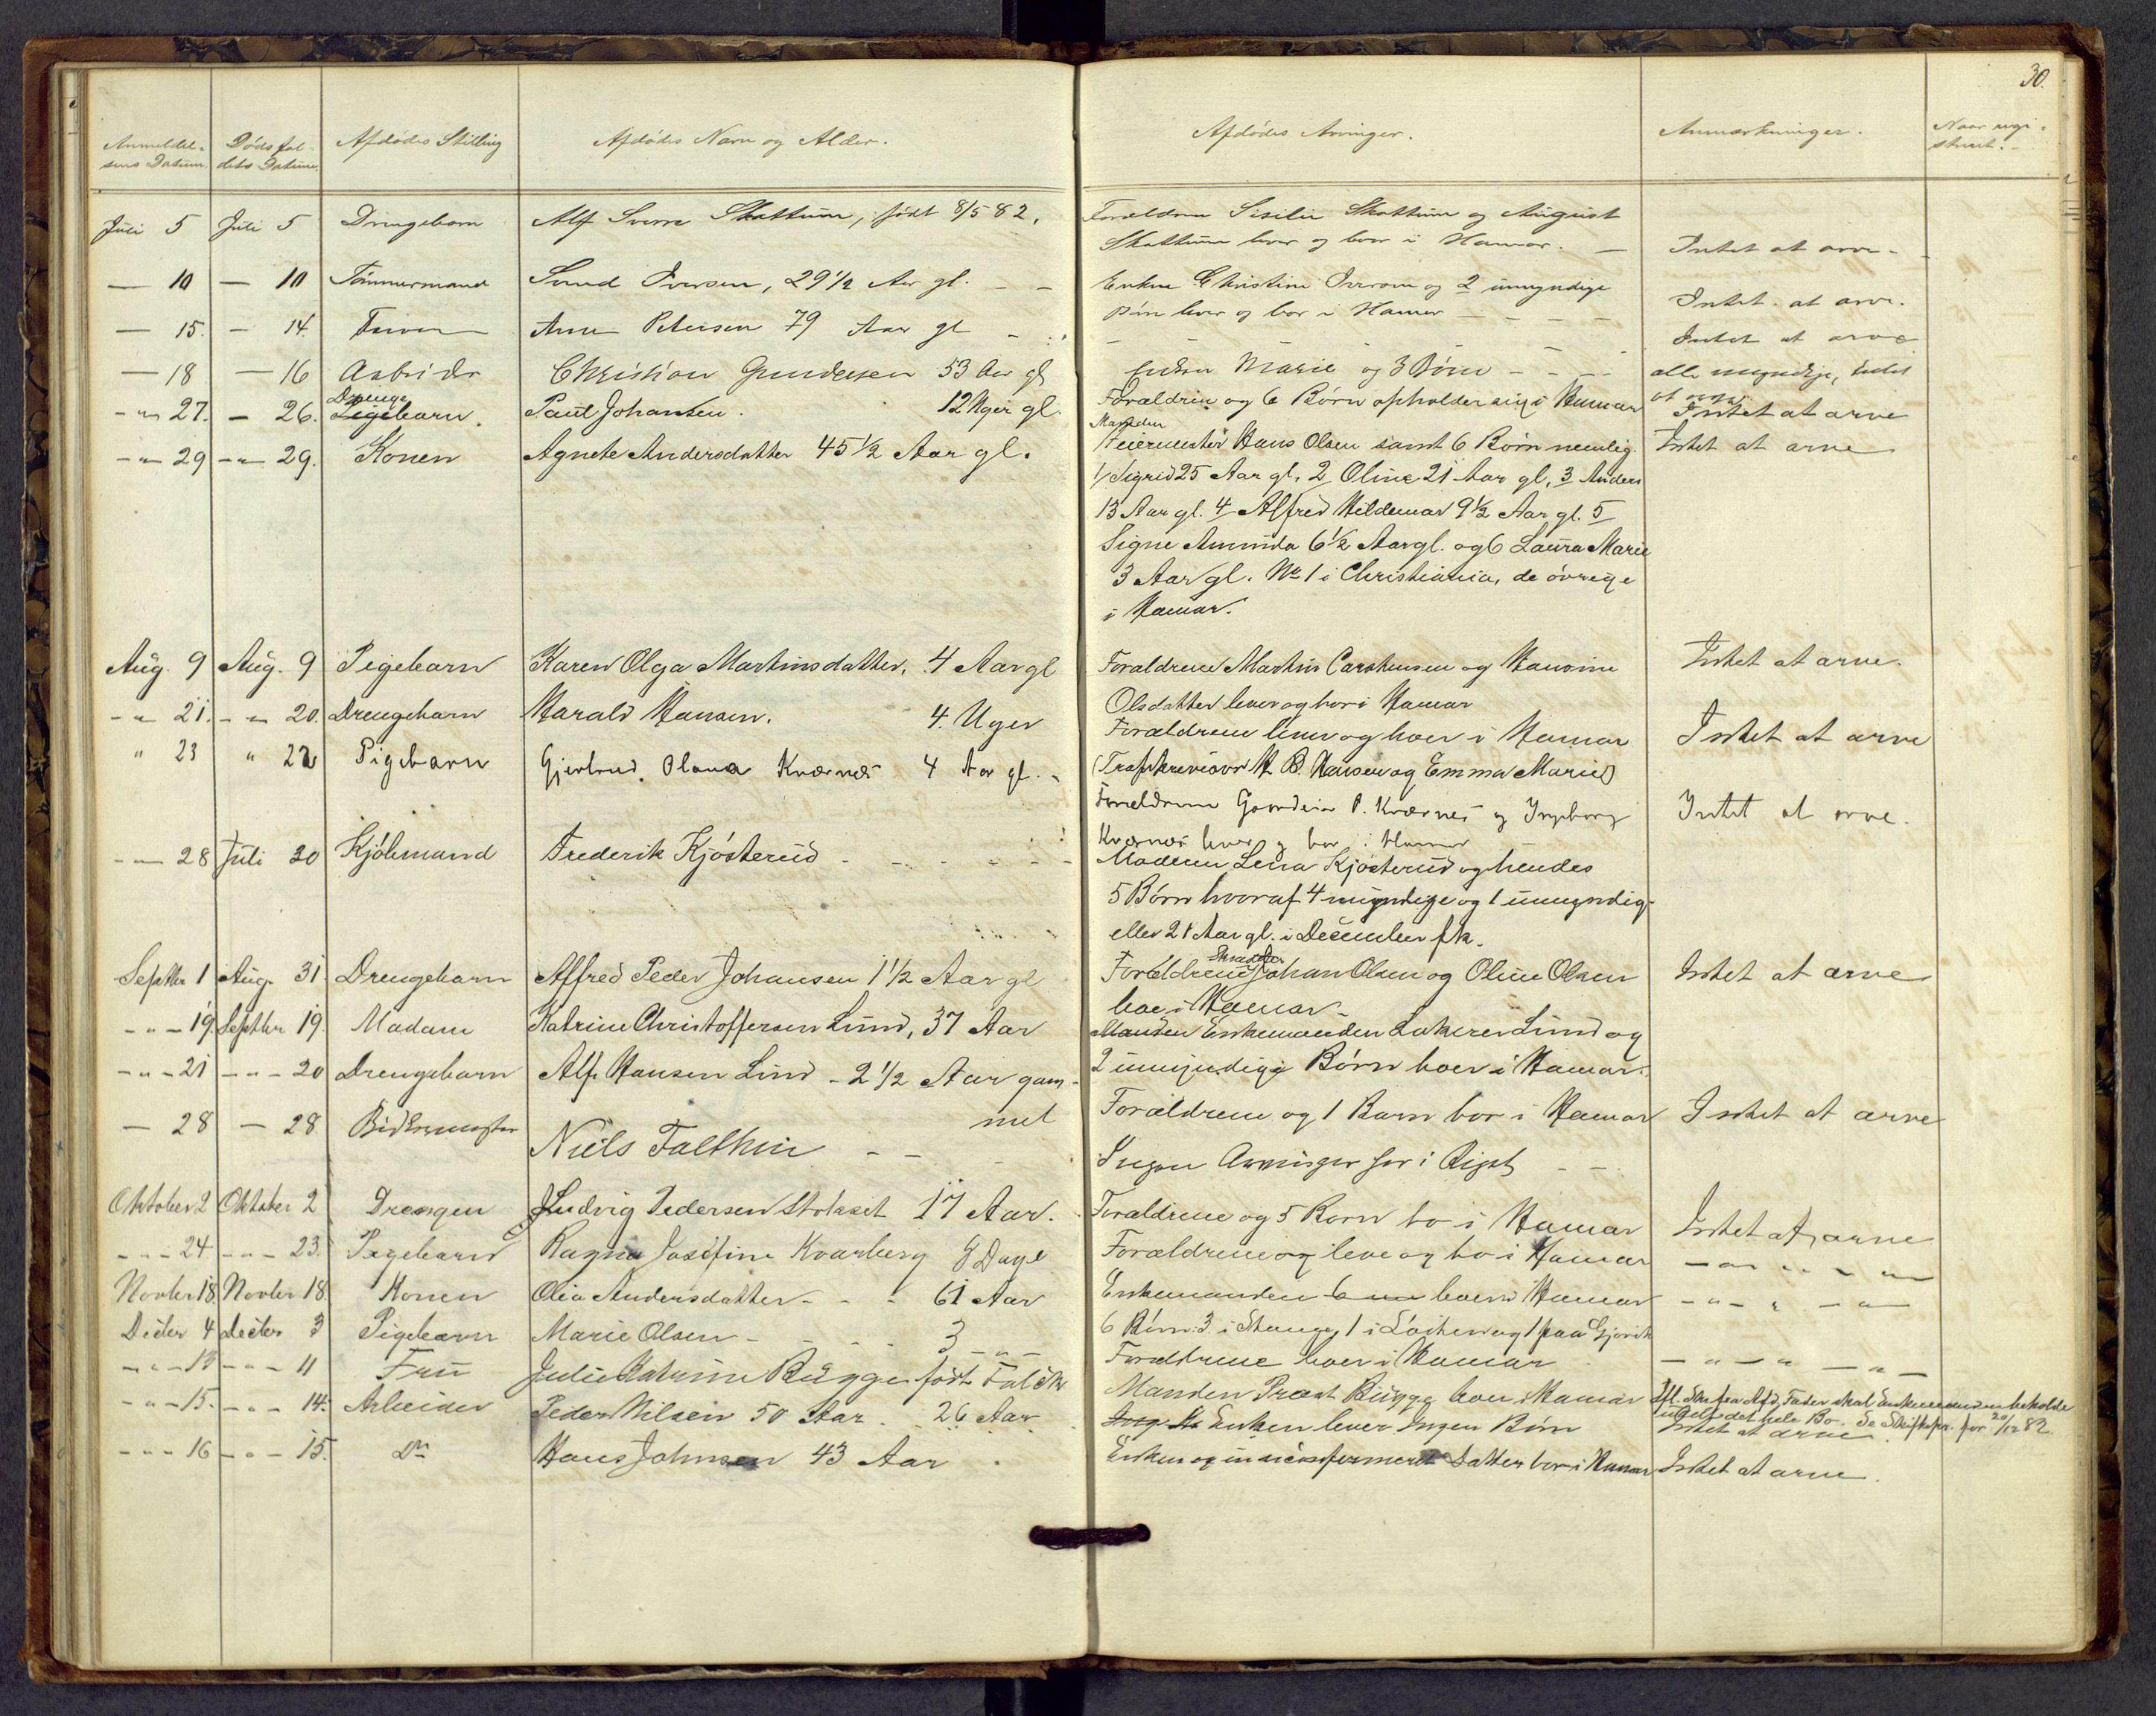 30.
Anmeldel-
sens Datum.
Dödsfal-
dets Datum.
Afdödes Stilling
Afdödes Navn og Alder.
Afdödes Arvinger.
Anmærkninger.
Naar regi-
streret.
Juli 5 Juli 5 Drengebarn Alf Sverre Skattum, født 8/5 82. Forældrene Sisilie Skattum og August
Skattum lever og boer i Hamar. — Intet at arve.
— 10 — 10 Tömmermand Svend Iversen, 29 1/2 Aar gl. — — Enken Christine Iversen og 2 umyndige
Børn lever og bor i Hamar — — — — Intet at arve.
— 15. — 14. Anne Petersen 79 Aar gl — Intet at arve
— 18 — 16 Arbeider Christian Gundersen 53 Aar gl Enken Marie og 3 Børn — — — alle umyndige, Intet
at arve
-"- 27. — 26. Drenge
Pigebarn. Paul Johansen. 12 Uger gl. Forældrene og 6 Børn opholder sig i Hamar Intet at arve
-"- 29 -"- 29. Konen Agnete Andersdatter 45 1/2 Aar gl. Manden
Feiermester Hans Olsen samt 6 Børn nemlig. Intet at arve
1/ Sigrid 25 Aar gl, 2/ Oline 21 Aar gl, 3/ Anders
13 Aar gl. 4/ Alfred Hildemar 9 1/2 Aar gl. 5/
Signe Aminda 6 1/2 Aar gl. og 6 Laura Marie
3 Aar gl. No 1 i Christiania, de övrige
i Hamar.
Aug. 9 Aug. 9 Pigebarn Karen Olga Martinsdatter, 4 Aar gl Forældrene Martin Carstensen og Hansine Intet at arve.
Olsdatter lever og bor i Hamar
-"- 21. -"- 20. Drengebarn Harald Hansen. 4. Uger Forældrene lever og boer i Hamar Intet at arve
(Trafikrevisor H. B. Hansen og Emma Marie)
" 23 " 22 Pigebarn Gjertrud Olava Kværnes 4 Aar gl. Forældrene P. Kværnes og Ingeborg Intet at arve.
Kværnes lever og bor i Hamar
-"- 28 Juli 30 Kjöbmand Frederik Kjösterud - - - - Moderen Lena Kjösterud og hendes
5 Børn hvoraf 4 myndige og 1 umyndig
eller 21 Aar gl. i December fk.
Septbr 1 Aug. 31 Drengebarn Alfred Peder Johansen 1 1/2 Aar gl Forældrene Skrædder Johan Olsen og Oline Olsen Intet at arve
boe i Hamar -
-"- 19. Septbr 19. Madam Katrine Christoffersen Lund, 37 Aar Manden Enkemanden Lund og
2 umyndige Børn boer i Hamar.
-"- 21 -"- 20 Drengebarn Alf Hansen Lund - 2 1/2 Aar gam-
mel Forældrene og 1 Barn bor i Hamar Intet at arve
— 28 — 28 Niels Falthin - - Ingen Arvinger her i Riget - -
Oktober 2 Oktober 2 Drengen Ludvig Pedersen Stokset 17 Aar. Forældrene og 5 Børn bo i Hamar Intet at arve
-"- 24 -"- 23. Pigebarn Ragna Josefine Kvarberg 8 Dage Forældrene og leve og bo i Hamar -"-"-"-
Novbr 18. Novbr 18. Konen Olia Andersdatter - - - 61 Aar Enkemanden boer i Hamar -"-"-"-
6 Børn: 3 i Stange, 1 i Löiten og 1 paa Gjövik
Decbr 4 Decbr 3 Pigebarn Marie Olsen - - - 3 -"- Forældrene boer i Hamar -"-"-"-
-"- 13 -"- 11 Fru Julie Katrine Bugge født Falck 26 Aar Manden Præst Bugge boer i Hamar Ifl. Skr. fra Afd. Fader skal Enkemanden beholde
det hele Bo. Se Skiftepr. for 20/12 82.
-"- 15. -"- 14. Arbeider Peder Nilsen 50 Aar. Enken lever Ingen Børn Intet at arve
-"- 16 -"- 15. Do Hans Johnsen 43 Aar. Enken og en uconfermeret Datter bor i Hamar Intet at arve.